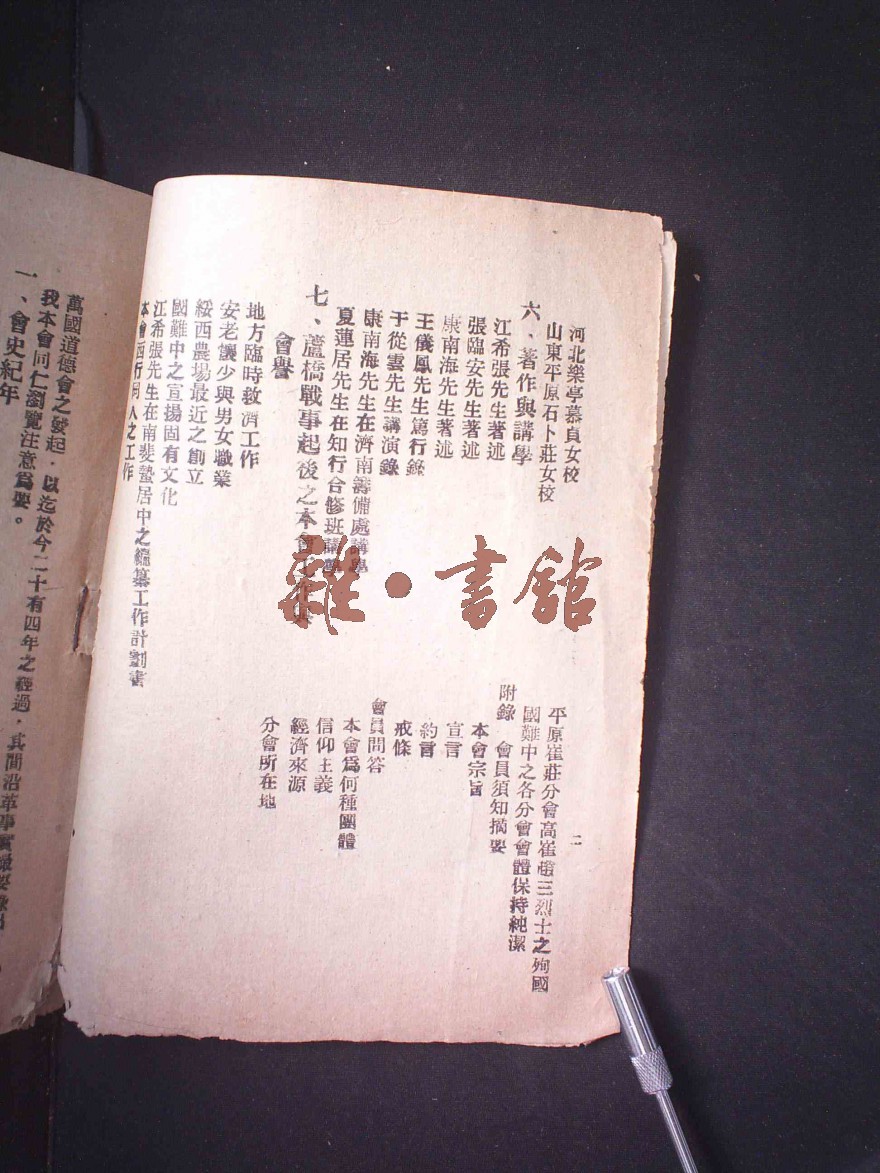 河北樂亭慕貞女校
山東平原石卜莊女校
六、著作與講學
江希張先生著述
張臨安先生著述
康南海先生著述
王儀鳳先生篤行錄
于從雲先生講演錄
康南海先生在濟南籌備處講學
夏蓮居先生在知行合修班講學
七、蘆橋戰事起後之本會
會譽
地方臨時救濟工作
安老懷少與男女職業
綏西農場最近之創立
國難中之宣揚固有文化
江希張先生在南斐蟄居中之編纂工作計劃書
本會西行同人之工作
二
平原崔莊分會高崔趙三烈士之殉國
國難中之各分會會體保持純潔
附錄 會員須知摘要
本會宗旨
宣言
約言
戒條
會員問答
本會爲何種團體
信仰主義
經濟來源
分會所在地
萬國道德會之發起，以迄於今二十有四年之經過，其間沿革事實
我本會同仁瀏覽注意爲要。
一、會史紀年
雜·書館